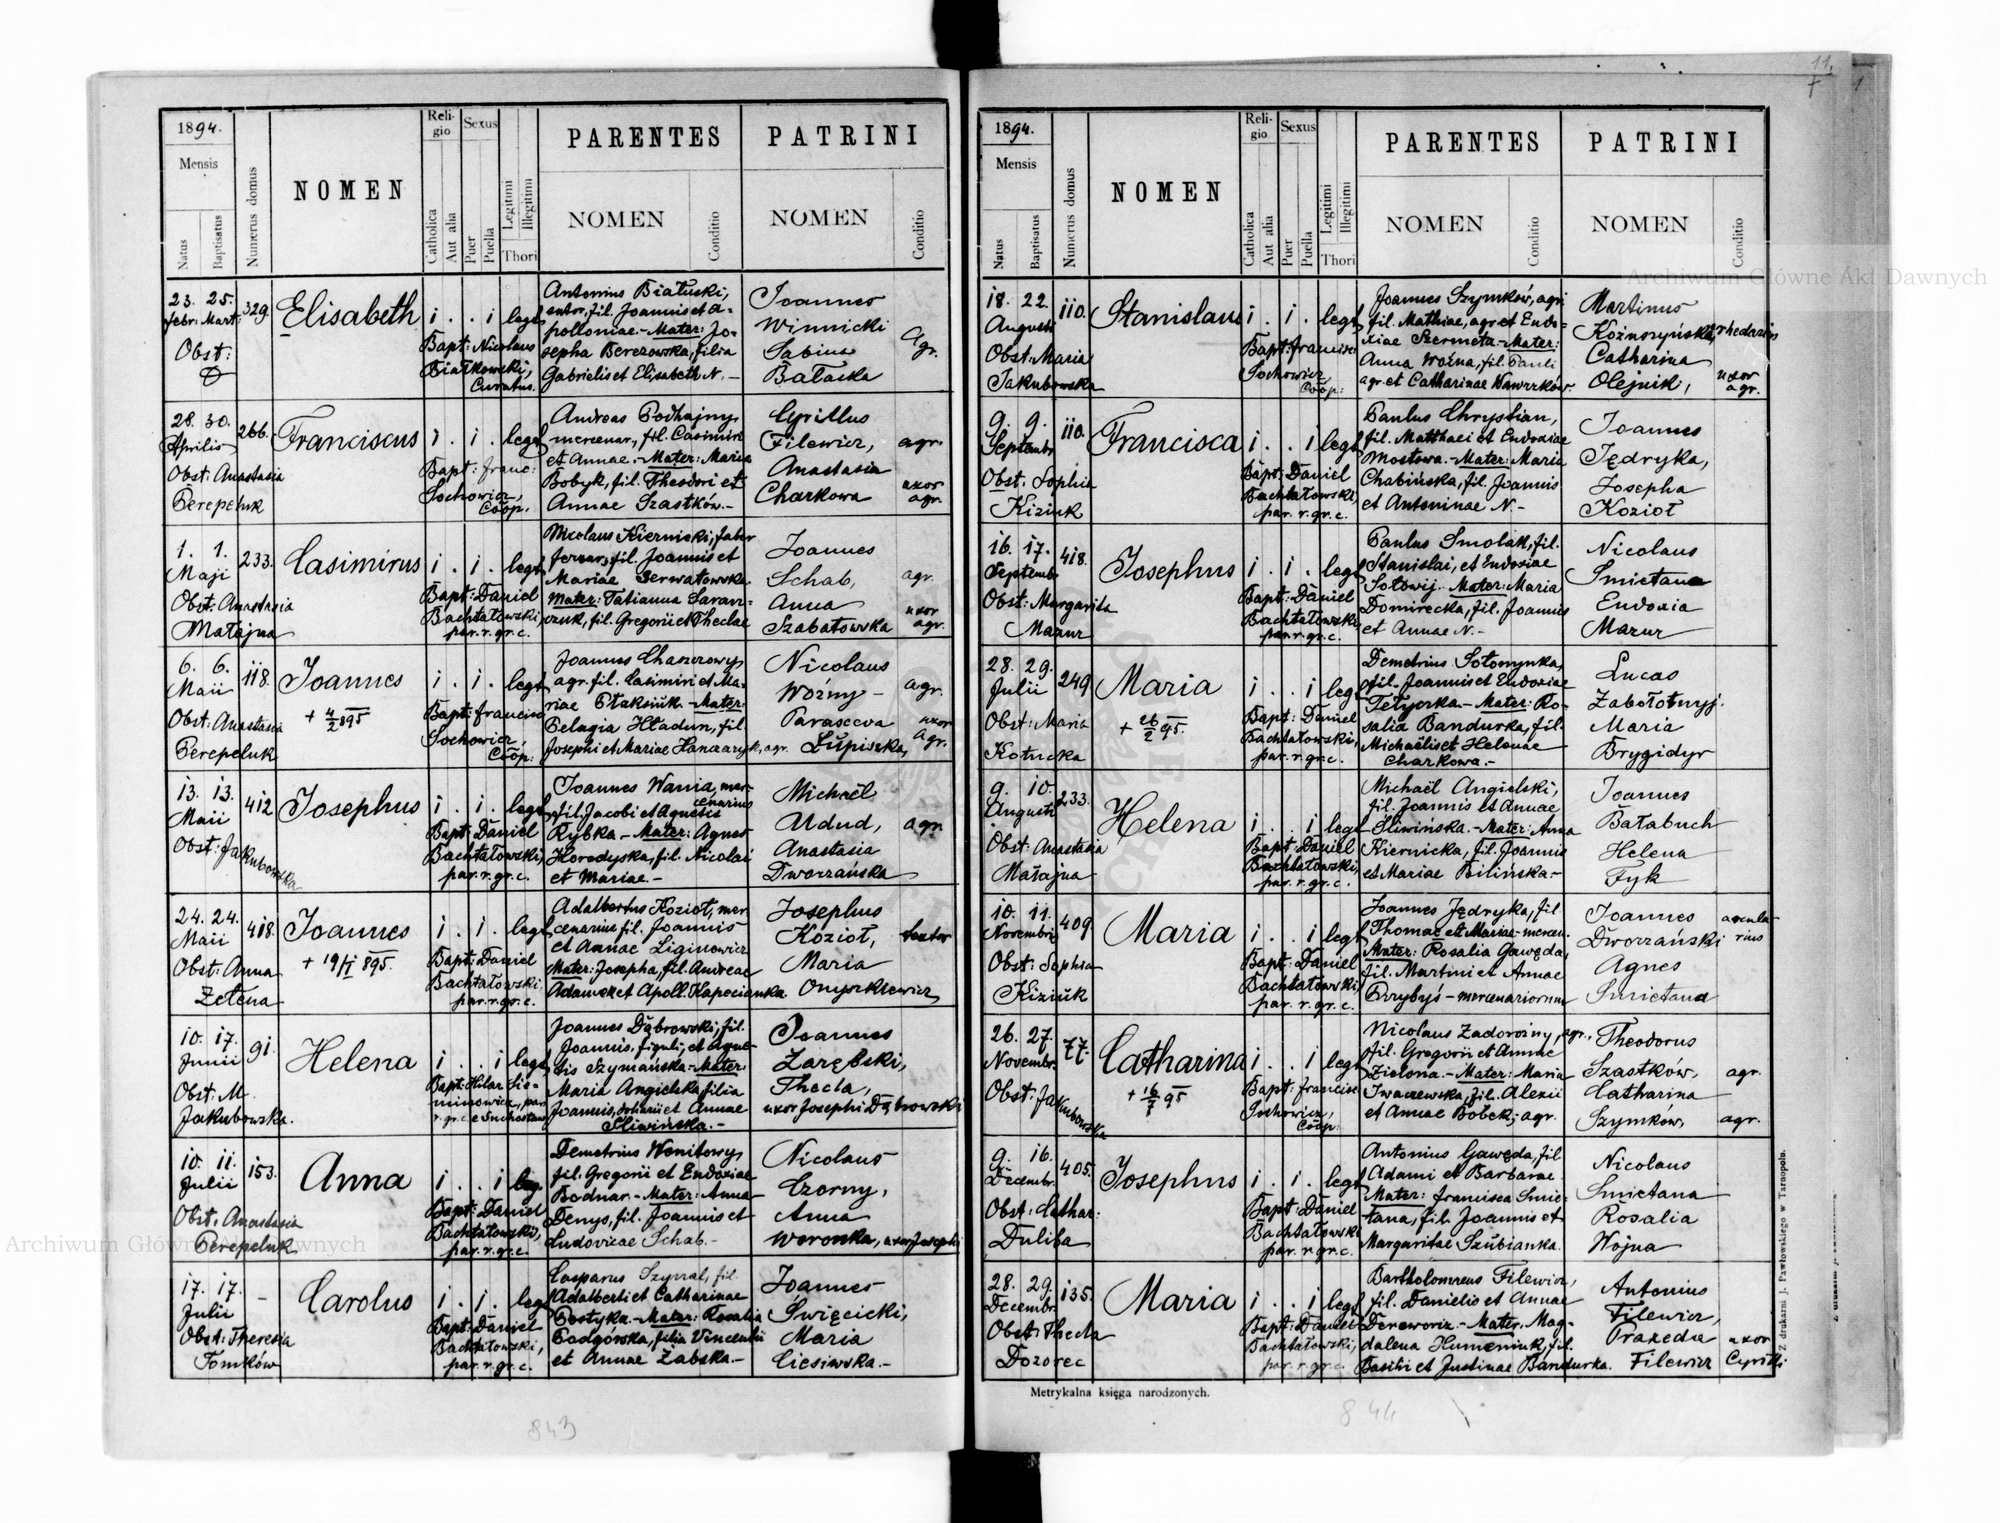 11.
1894.
Mensis
Natus
Baptisatus
Numerus domus
NOMEN
Religio
Catholica
Aut alia
Sexus
Puer
Puella
Legitimi
Illegitimi
Thori
PARENTES
NOMEN
Conditio
PATRINI
NOMEN
Conditio
23. 25. 329.
Febr: Mart:
Obst:
Elisabeth
i . . i legt
Bapt: Nicolaus
Białkowski,
Curatus.
Antonius Białuski,
sutor, fil. Joannis et A-
polloniae. - Mater: Jo-
sepha Berezowska, filia
Gabrielis et Elisabeth N. -
Joannes
Winnicki
Sabina
Bałaska
Agr.
28. 30. 266.
Aprilis
Obst: Anastasia
Perepeluk
Franciscus
i . i . legt
Bapt: Franc:
Sochowicz,
Coop.
Andreas Podhajny,
mercenar, fil. Casimiri
et Annae. - Mater: Maria
Bobyk, fil. Theodori et
Annae Szastków. -
Cyrillus
Filewicz,
Anastasia
Charkowa
agr.
uxor
agr.
1. 1. 233.
Maji
Obst: Anastasia
Małajna
Casimirus
i . i . legt
Bapt: Daniel
Bachtałowski,
par. r. gr. c.
Nicolaus Kiernicki, faber
ferrar, fil. Joannis et
Mariae Serwatowska
Mater: Tatianna Saran-
czuk, fil. Gregorii et Theclae
Joannes
Schab,
Anna
Szabatowska
agr.
uxor
agr.
6. 6. 118.
Maii
Obst: Anastasia
Perepeluk
Joannes
+ 4/2 895
i . i . legt
Bapt: Francisc
Sochowicz,
Coop:
Joannes Chaszczowy,
agr. fil. Casimiri et Ma-
riae Ptaksiuk. - Mater:
Pelagia Hładun, fil.
Josephi et Mariae Hanczaryk, agr.
Nicolaus
Woźny -
Parasceva
Łupiszka,
agr.
uxor
Agr.
13. 13. 412
Maii
Obst: Jakubowska
Josephus
i . i . legt
Bapt: Daniel
Bachtałowski,
par. r. gr. c.
Joannes Wania, mer-
cenarius
fil. Jacobi et Agnetis
Rybka - Mater: Agnes
Horodyska, fil. Nicolai
et Mariae. -
Michaël
Udud,
Anastasia
Dworzańska
agr.
24. 24. 418.
Maii
Obst: Anna
Zełena
Joannes
+ 19/I 895.
i . i . legt
Bapt: Daniel
Bachtałowski
par. r. gr. c.
Adalbertus Kozioł, mer
cenarius fil. Joannis
et Annae Liginowicz
Mater: Josepha, fil. Andreae
Adamek et Apoll. Kapecianka.
Josephus
Kozioł,
Maria
Onyszkiewicz
10. 17. 91.
Junii
Obst: M.
Jakubowska.
Helena
i . . i legt
Bapt: Hilar Sie-
minowicz, par.
r. gr. c. e Suchostaw
Joannes Dąbrowski, fil.
Joannis, figuli, et Agne-
tis Szymańska - Mater:
Maria Angielska filia
Joannis, doliarii et Annae
Śliwińska. -
Joannes
Zarębski,
Thecla,
uxor Josephi Dąbrowski
10. 11. 153.
Julii
Obst. Anastasia
Perepeluk
Anna
i . . i leg.
Bapt: Daniel
Bachtałowski,
par. r. gr. c.
Demetrius Wonitowy,
fil. Gregorii et Eudoxiae
Bodnar. - Mater: Anna
Denys, fil. Joannis et
Ludovicae Schab. -
Nicolaus
Czorny,
Anna
Woronka, uxor Josephi
17. 17. -
Julii
Obst: Theresia
Tomków
Carolus
i . i . legt
Bapt: Daniel
Bachtałowski,
par. r. gr. c.
Casparus Szyrral, fil.
Adalberti et Catharinae
Postyka. - Mater: Rosalia
Podgórska, filia Vincentii
et Annae Żabska. -
Joannes
Święcicki,
Maria
Ciesiwska. -
843
1894.
Mensis
Natus
Baptisatus
Numerus domus
NOMEN
Religio
Catholica
Aut alia
Sexus
Puer
Puella
Legitimi
Illegitimi
Thori
PARENTES
NOMEN
Conditio
PATRINI
NOMEN
Conditio
18. 22. 110.
Augusti
Obst: Maria
Jakubowska
Stanislaus
i . i . legt
Bapt: Francisc
Sochowicz,
Coop:
Joannes Szymków, agri
fil. Mathiae, agr. et Eudo-
xiae Szermeta - Mater:
Anna Woźna, fil. Pauli
agr. et Catharinae Wawrzków.
Martinus
rhedarius
Catharina
Olejnik,
uxor
agr.
9. 9. 110.
Septembr
Obst. Sophia
Kiziuk
Francisca
i . . i legt
Bapt: Daniel
Bachtałowski,
par. r. gr. c.
Paulus Chrystian,
fil. Matthaei et Eudoxiae
Mostowa. - Mater: Maria
Chabińska, fil. Joannis
et Antoninae N. -
Joannes
Jędryka,
Josepha
Kozioł
16. 17. 418.
Septemb
Obst: Margarita
Mazur
Josephus
i . i . legt
Bapt: Daniel
Bachtałowski,
par. r. gr. c.
Paulus Smolak, fil.
Stanislai, et Eudoxiae
Sołowij. Mater: Maria
Domirecka, fil. Joannis
et Annae N. -
Nicolaus
Smietana
Eudoxia
Mazur
28. 29. 249
Julii
Obst: Maria
Kotucka
Maria
+ 26/2 95.
i . . i legt
Bapt: Daniel
Bachtałowski,
par. r. gr. c.
Demetrius Sołomynka,
fil. Joannis et Eudoxiae
Tetyorka. - Mater: Ro-
salia Bandurka, fil.
Michaëlis et Helenae
Charkowa. -
Lucas
Zabołotnyj.
Maria
Brygidyr
9. 10. 233.
Augusti
Obst: Anastasia
Małajna
Helena
i . . i legt
Bapt: Daniel
Bachtałowski,
par. r. gr. c.
Michaël Angielski,
fil. Joannis et Annae
Śliwińska. - Mater: Anna
Kiernicka, fil. Joannis
et Mariae Bilińska -
Joannes
Bałabuch
Helena
Fyk
10. 11. 409.
Novembri
Obst: Sophia
Kiziuk
Maria
i . . i legt
Bapt: Daniel
Bachtałowski,
par. r. gr. c.
Joannes Jędryka, fil.
Thomae et Mariae - mercen.
Mater: Rosalia Gawęda,
fil. Martini et Annae
Przybyś - mercenariorum
Joannes
Dworzański
Agnes
Smietana
26. 27. 77.
Novembr.
Obst: Jakubowska
Catharina
+ 16/7 95
i . . i legt
Bapt: Francisc
Sochowicz,
Coop:
Nicolaus Zadorożny, agr.,
fil. Gregorii et Annae
Zielona. - Mater: Maria
Iwaszewska, fil. Alexii
et Annae Bobek, agr.
Theodorus
Szastków,
Catharina
Szymków,
agr.
agr.
9. 16. 405.
Decembr.
Obst: Cathar:
Duliba
Josephus
i . i . legt
Bapt: Daniel
Bachtałowski
par. r. gr. c.
Antonius Gawęda, fil
Adami et Barbarae
Mater: Francisca Smie-
tana, fil. Joannis et
Margaritae Szubianka.
Nicolaus
Smietana
Rosalia
Wojna
28. 29. 135.
Decembr.
Obst: Thecla
Dozorec
Maria
i . . i legt
Bapt: Daniel
Bachtałowski,
par. r. gr. c.
Bartholomeus Filewicz,
fil. Danielis et Annae
Dereworiz. - Mater: Mag-
dalena Humeniuk, fil.
Basilii et Justinae Bandurka.
Antonius
Filewicz,
Praxeda
Filewicz
uxor
Cyrilli
Metrykalna księga narodzonych.
Z drukarni J. Pawłowskiego w Tarnopolu.
844
Archiwum Główne Akt Dawnych
Archiwum Główne Akt Dawnych